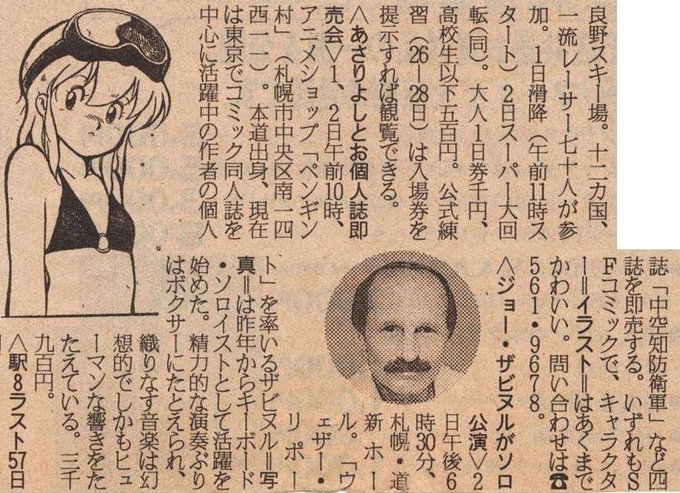 良野スキー場。十二カ国、
一流レーサー七十人が参
加。1日滑降(午前11時ス
タート)2日スーパー大回
転(同)。大人1日券千円、
高校生以下五百円。公式練
習(26―28日)は入場券を
提示すれば観覧できる。
〈あさりよしとお個人誌即
売会〉1、2日午前10時、
アニメショップ「ペンギン
村」(札幌市中央区南一四
西一一)。本道出身、現在
は東京でコミック同人誌を
中心に活躍中の作者の個人
誌「中空知防衛軍」など四
誌を即売する。いずれもS
Fコミックで、キャラクタ
ー=イラスト=はあくまで
かわいい。問い合わせは☎
561・9678。
〈ジョー・ザビヌルがソロ
公演〉2
日午後6
時30分、
札幌・道
新ホー
ル。「ウ
ェザー・
リポー
ト」を率いるザビヌル=写
真=は昨年からキーボード
・ソロイストとして活躍を
始めた。精力的な演奏ぶり
はボクサーにたとえられ、
織りなす音楽は幻
想的でしかもヒュ
ーマンな響きをた
たえている。三千
九百円。
〈駅8ラスト57日